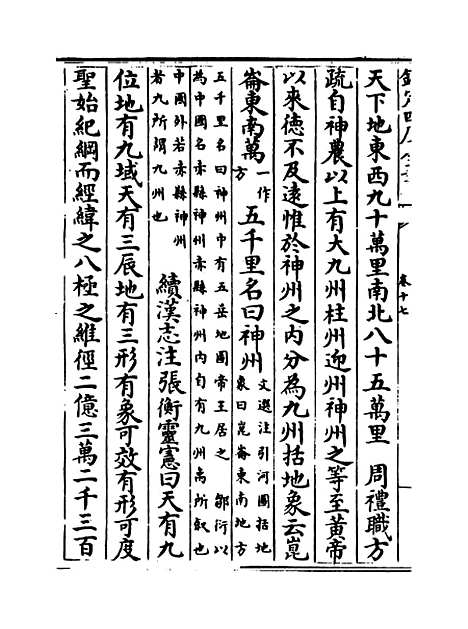 欽定四庫全書
卷十七
天下地東西九十萬里南北八十五萬里　周禮職方
疏自神農以上有大九州柱州迎州神州之等至黃帝
以來德不及遠惟於神州之内分為九州括地象云崑
崙東南萬
一作
方
五千里名曰神州
文選注引河圖括地
象曰崑崙東南地方
五千里名曰神州中有五岳地圖帝王居之　鄒衍以
為中國名赤縣神州赤縣神州内自有九州禹所叙也
中國外若赤縣神州
者九所謂九州也
續漢志注張衡靈憲曰天有九
位地有九域天有三辰地有三形有象可效有形可度
聖始紀綱而經緯之八極之維徑二億三萬二千三百